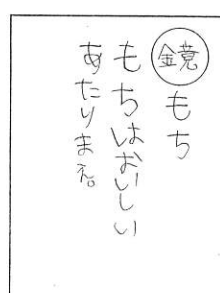 鏡もち
もちはおいしい
あたりまえ。